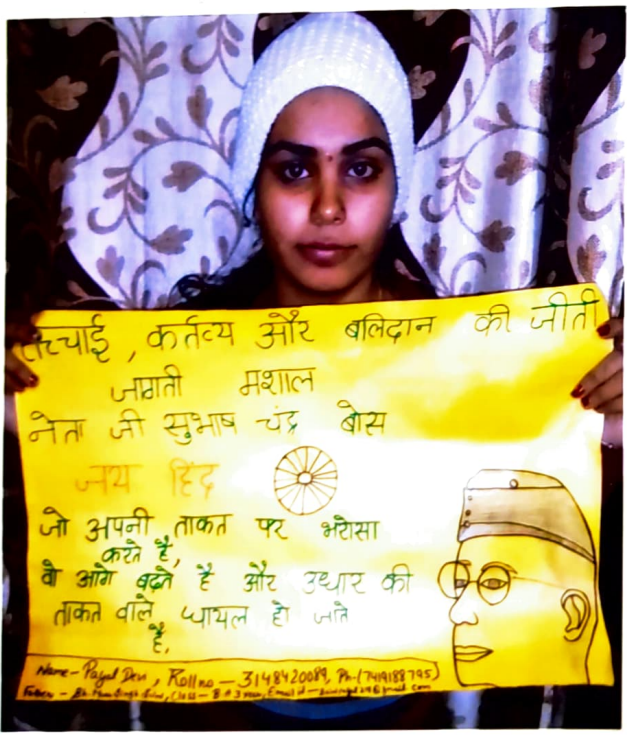 सच्चाई, कर्तव्य और बलिदान की जीती
जागती मशाल
नेता जी सुभाष चंद्र बोस
जय हिंद
जो अपनी ताकत पर भरोसा
करते है,
वो आगे बढ़ते है और उधार की
ताकत वाले घायल हो जाते
है,
Name- Payal Devi, Roll no - 3148420089, Ph-(7419188795)
Class - B.A 3 year, Email id -